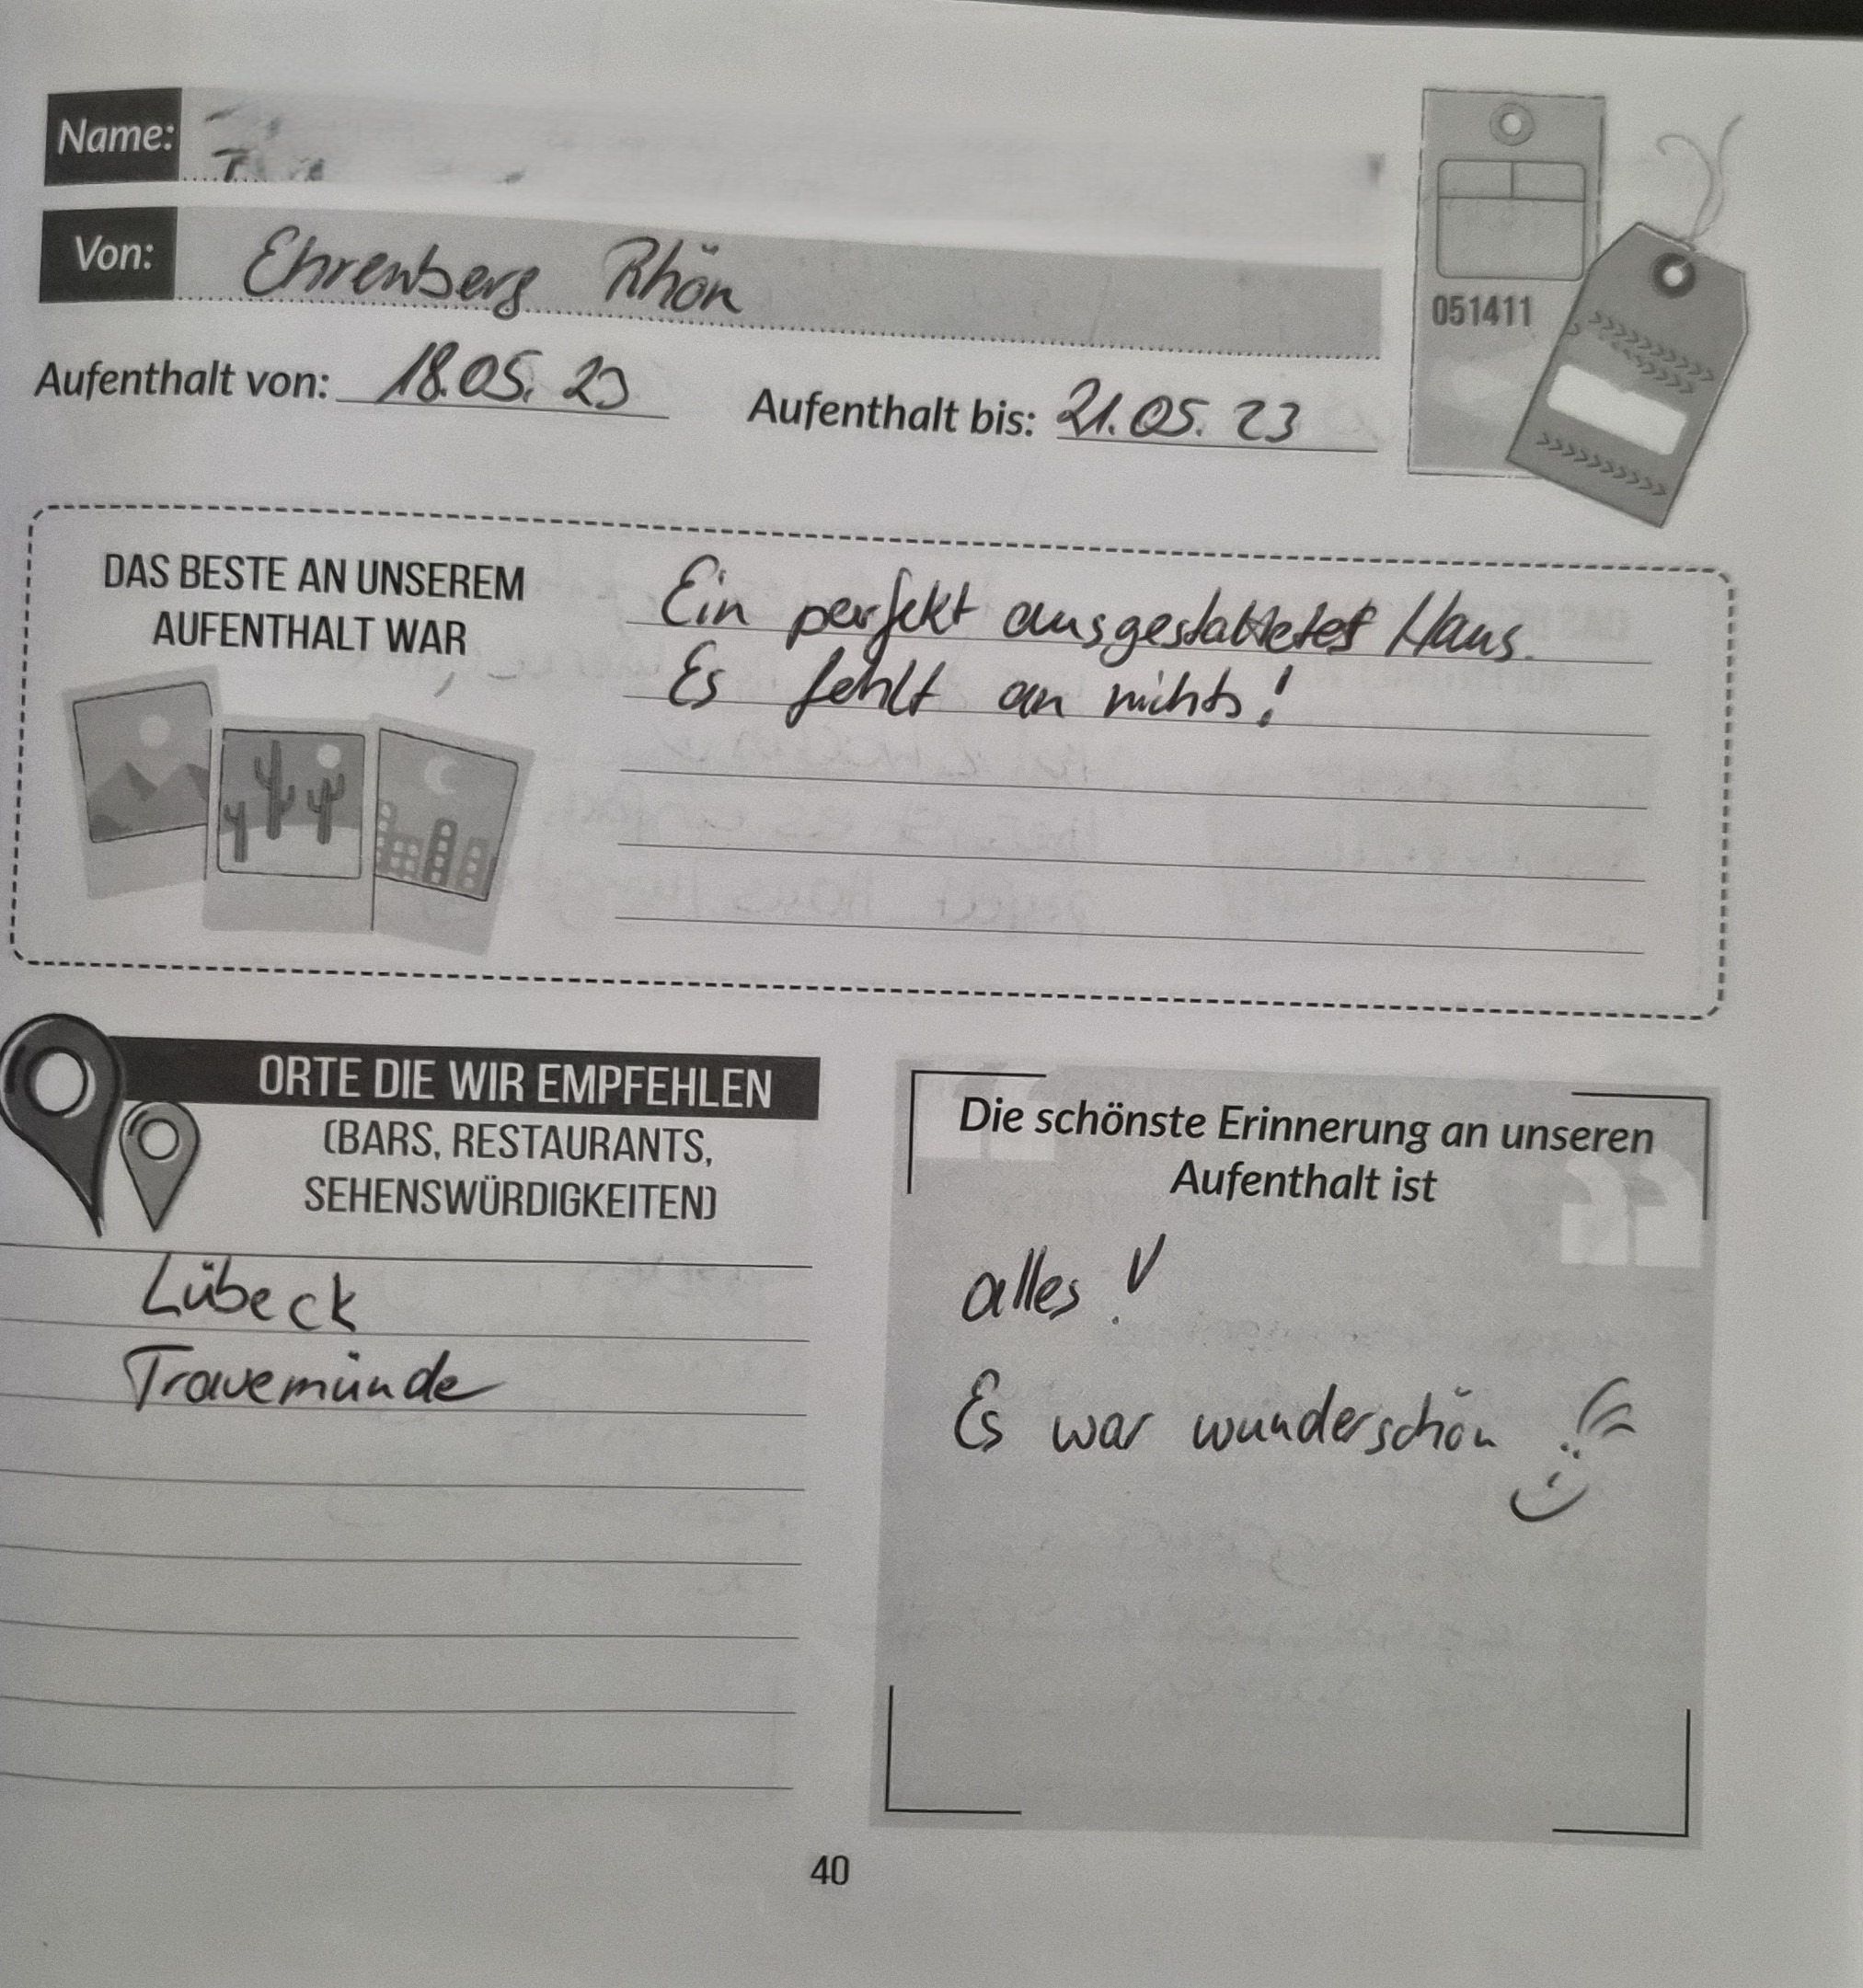 Name:
Von: Ehrenberg Rhön
Aufenthalt von: 18.05.23 Aufenthalt bis: 21.05.23
051411
DAS BESTE AN UNSEREM
AUFENTHALT WAR
Ein perfekt ausgestattetes Haus.
Es fehlt an nichts!
ORTE DIE WIR EMPFEHLEN
(BARS, RESTAURANTS,
SEHENSWÜRDIGKEITEN)
Lübeck
Travemünde
Die schönste Erinnerung an unseren
Aufenthalt ist
alles!
Es war wunderschön
40